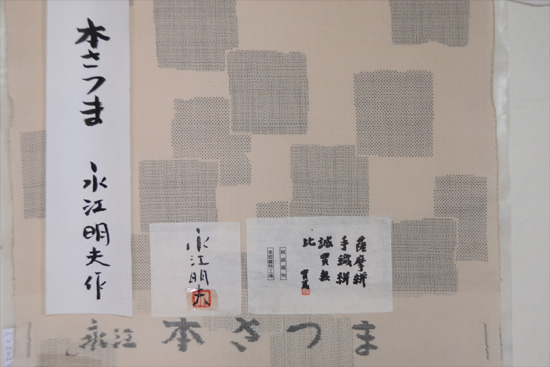 本さつま 永江明夫作
永江明夫
薩摩絣
手織絣
誠實無
比
永江 本さつま